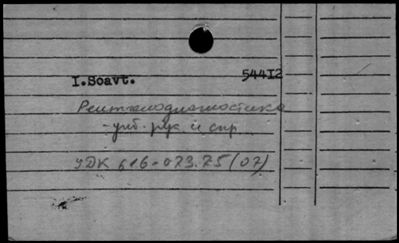 I.Soavt. 54412
Рентгенодиагностика
- учб. рук и спр.
УДК 616-073.75(07)